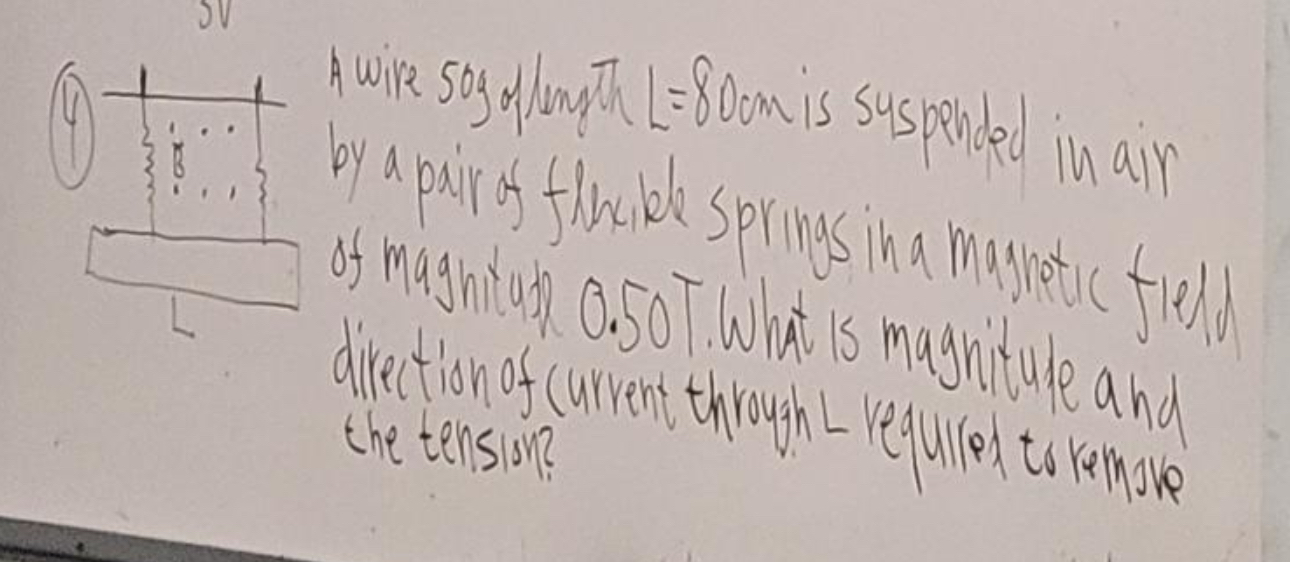 5V
④
B
L
A wire 50g of length L=80cm is suspended in air
by a pair of flexible springs in a magnetic field
of magnitude 0.50T. What is magnitude and
direction of current through L required to remove
the tension?